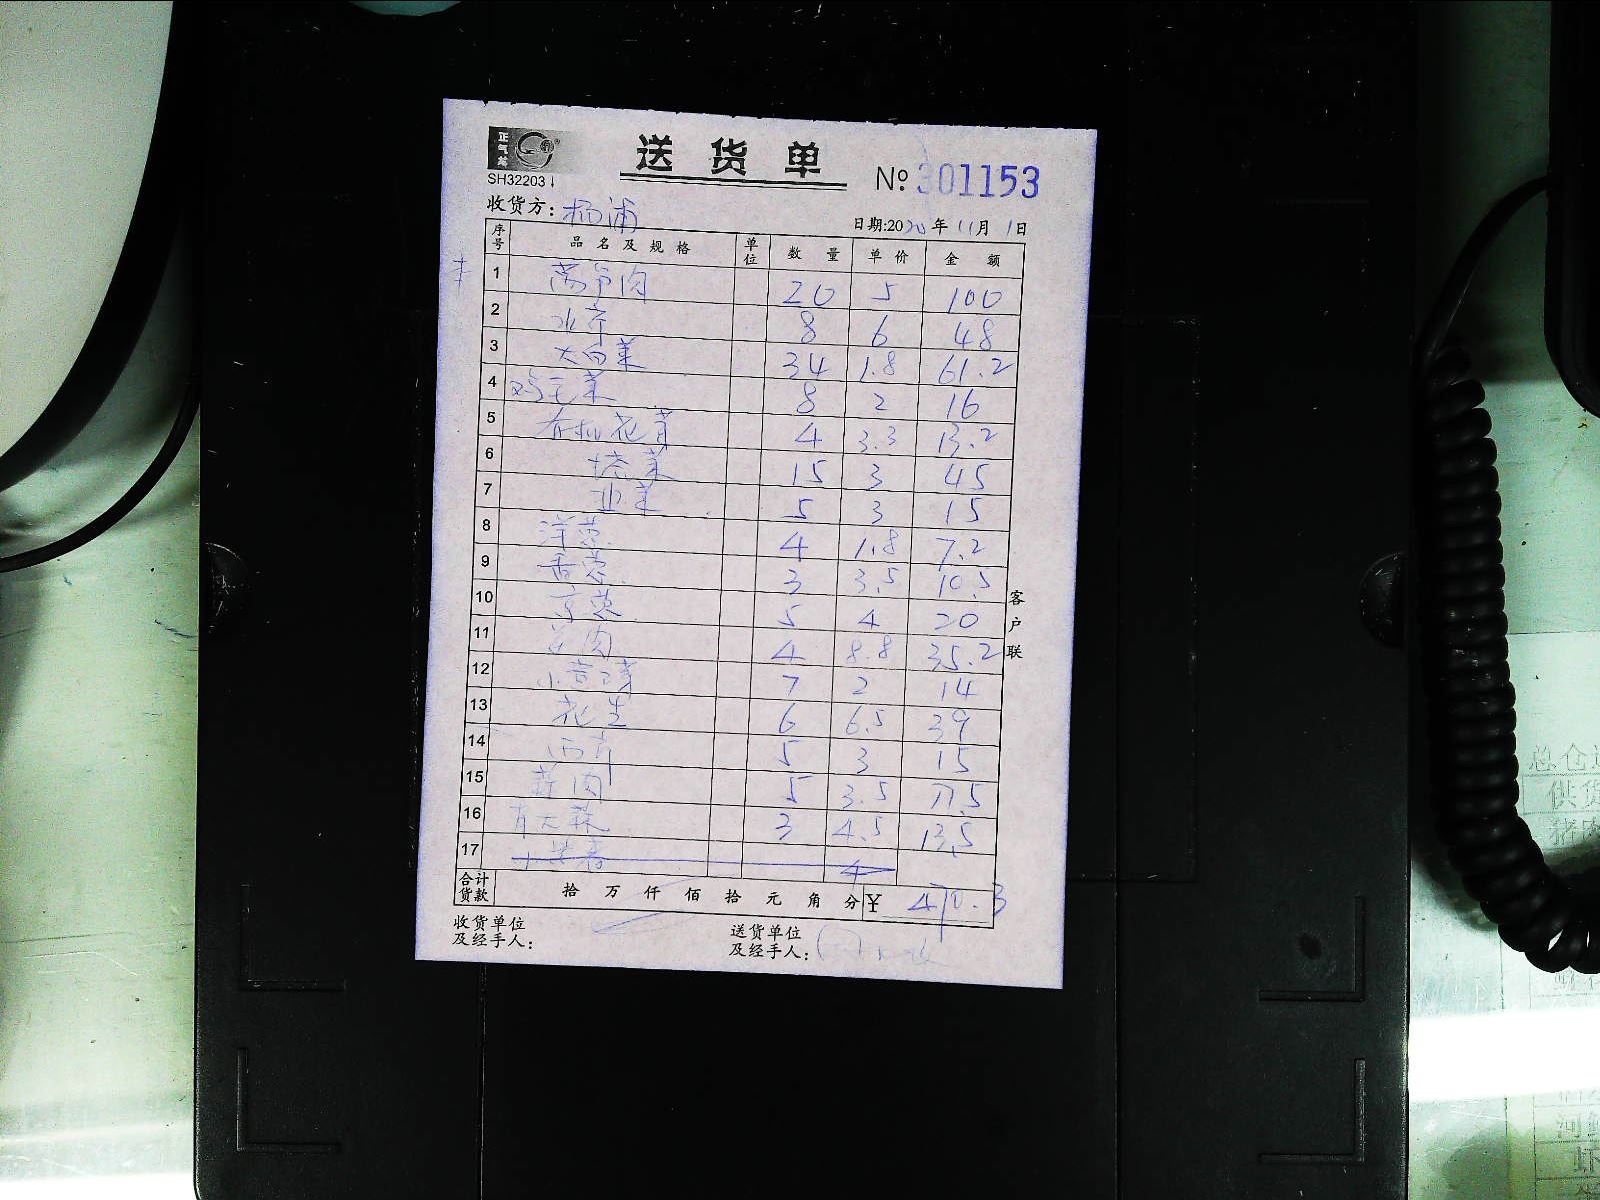 正气
送货单
SH32203
№ 301153
收货方: 杨浦
日期:2020年11月1日
序号 品名及规格 单位 数量 单价 金额
1 莴笋肉 20 5 100
2 水芹 8 6 48
3 大白菜 34 1.8 61.2
4 鸡毛菜 8 2 16
5 有机花菜 4 3.3 13.2
6 塔菜 15 3 45
7 菜 5 3 15
8 洋葱 4 1.8 7.2
9 香葱 3 3.5 10.5
10 京葱 5 4 20
11 肉 4 8.8 35.2
12 小 7 2 14
13 花生 6 6.5 39
14 西芹 5 3 15
15 肉 5 3.5 17.5
16 青大蒜 3 4.5 13.5
17 4
合计货款 拾 万 仟 佰 拾 元 角 分 ¥ 470.3
收货单位及经手人:
送货单位及经手人:
客户联
总仓
供货
猪肉